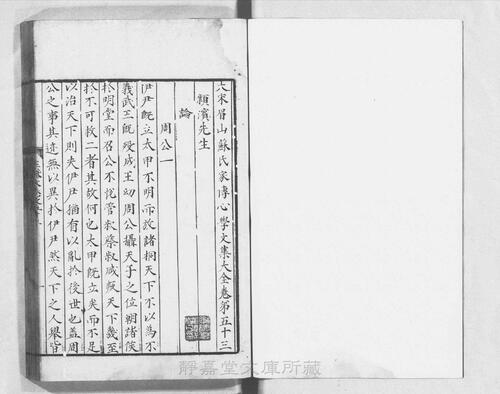 大宋眉山蘇氏家傳心學文集大全卷第五十三
頴濱先生
論
周公一
伊尹既立太甲不明而放諸桐天下不以為不
義武王既殁成王幼周公攝天子之位朝諸侯
於明堂而召公不悅管叔蔡叔咸叛天下幾至
於不可救二者其故何也太甲既立矣而不足
以治天下則夫伊尹猶有以亂於後世也盖周
公之事其迹無以異於伊尹然天下之人舉皆
靜嘉堂文庫所藏